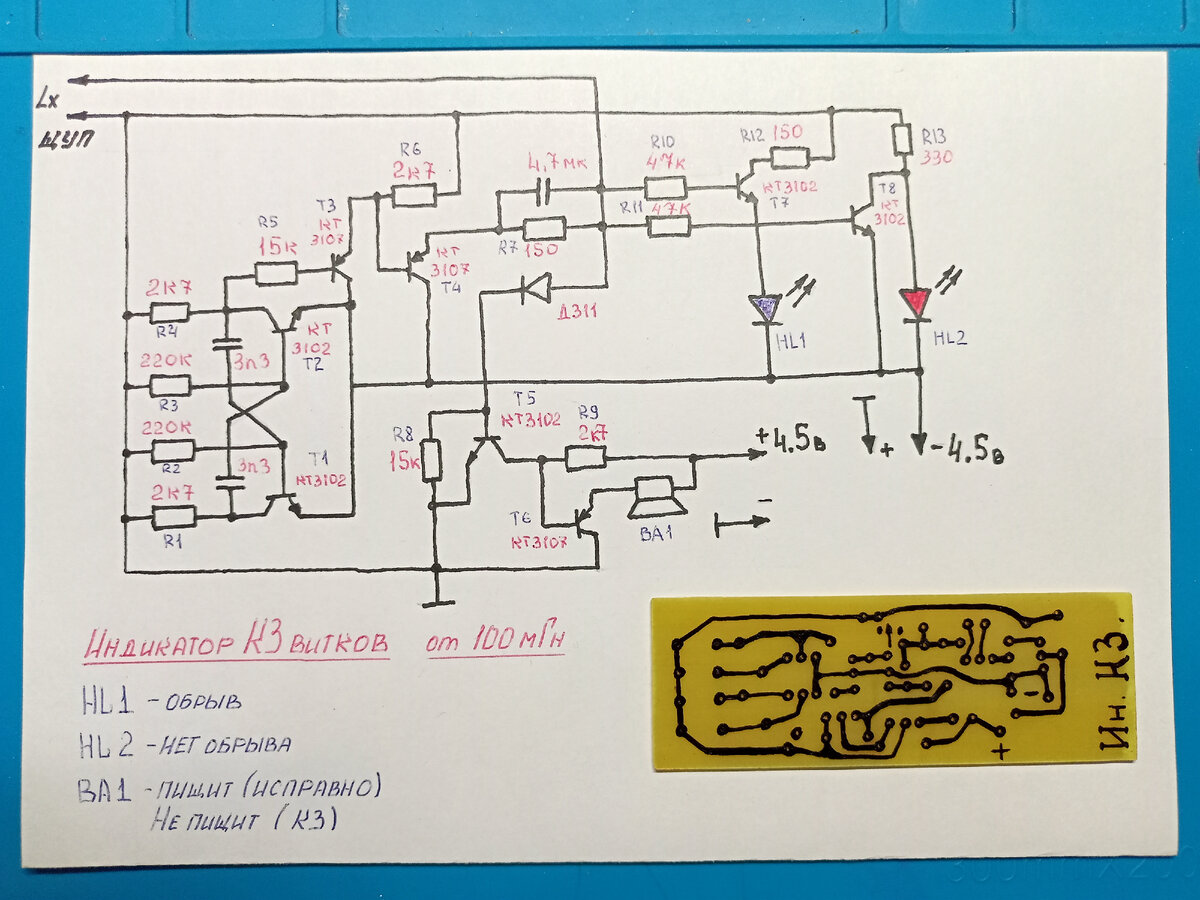 Lx
ЩУП
R6
2к7
4,7мк
R10
47к
R12 150
R13
330
КТ3102
T7
T8
КТ
3102
T3
КТ
3107
R5
15к
R11 47к
R7 150
КТ
3107
T4
2к7
R4
Д311
КТ
3102
T2
3п3
HL1
HL2
220к
R3
220к
R2
T5
КТ3102
R9
2к7
R8
15к
+4.5в
+
-4.5в
3п3
T1
КТ3102
2к7
R1
T6
КТ3107
BA1
-
Индикатор КЗ витков от 100мГн
HL1 - обрыв
HL2 - нет обрыва
BA1 - пищит (исправно)
Не пищит (КЗ)
Ин. КЗ.
-
+